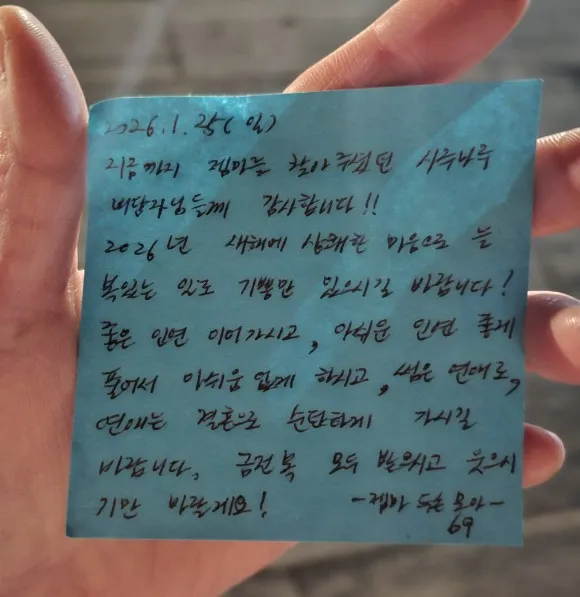 2026.1.25(일)
지금까지 젬마를 찾아주셨던 시루나루
내담자님들께 감사합니다!!
2026년 새해에 상쾌한 마음으로 늘
복있는 일로 기쁨만 있으시길 바랍니다!
좋은 인연 이어가시고, 아쉬운 인연 좋게
풀어서 아쉬움없게 하시고, 썸은 연애로,
연애는 결혼으로 순탄하게 가시길
바랍니다. 금전복 모두 받으시고 웃으시
기만 바랄게요!
-젬마
69